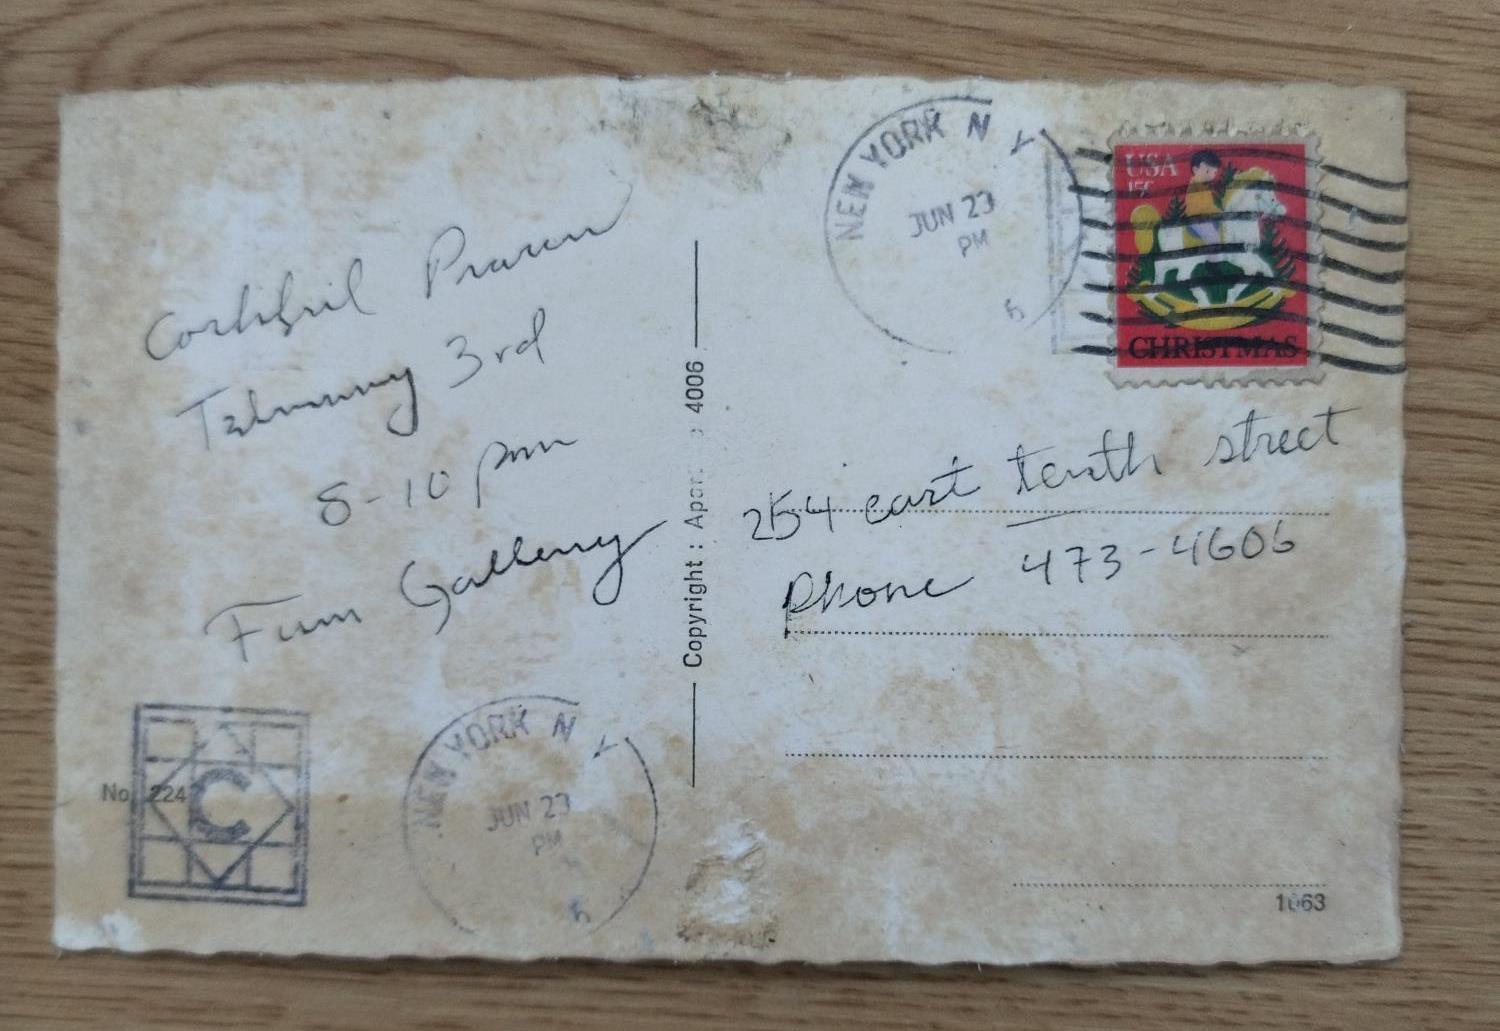 NEW YORK N Y
JUN 23
PM
USA
15c
CHRISTMAS
3rd
8-10 pm
Fun Gallery
Copyright :
4006
254 east tenth street
Phone 473-4606
No. 224
C
NEW YORK N Y
JUN 23
PM
1063